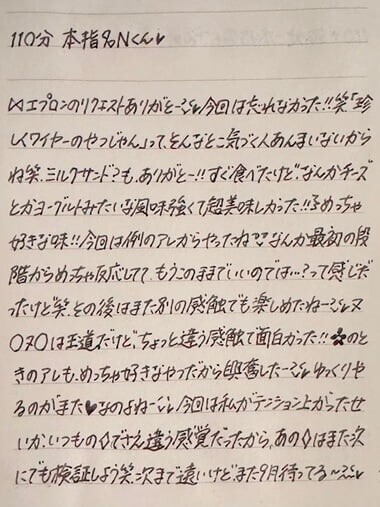 110分 本指名Nくん♥
⋈エプロンのリクエストありがと〜♡今回は忘れなかった!!笑「珍
しくワイヤーのやつじゃん」って、そんなとこ気づく人あんまいないから
ね笑 ミルクサンド⋈も、ありがと〜!!すぐ食べたけど、なんかチーズ
とかヨーグルトみたいな風味強くて超美味しかった!!♡めっちゃ
好きな味!!今回は例のアレからやったね♡なんか最初の段
階からめっちゃ反応してて、もうこのままでいいのでは…?って感じだ
ったけど笑、その後はまた別の感触でも楽しめたね〜♡ヌ
〇ヌ〇は王道だけど、ちょっと違う感触で面白かった!!♣のと
きのアレも、めっちゃ好きなやつだから興奮した〜♡ゆっくりや
るのがまた♥なのよね〜♡今回は私がテンション上がったせ
いか、いつもの◊でさえ違う感覚だったから、あの◊はまた次
にでも検証しよう笑 次まで遠いけど、また9月待ってる〜♡♥